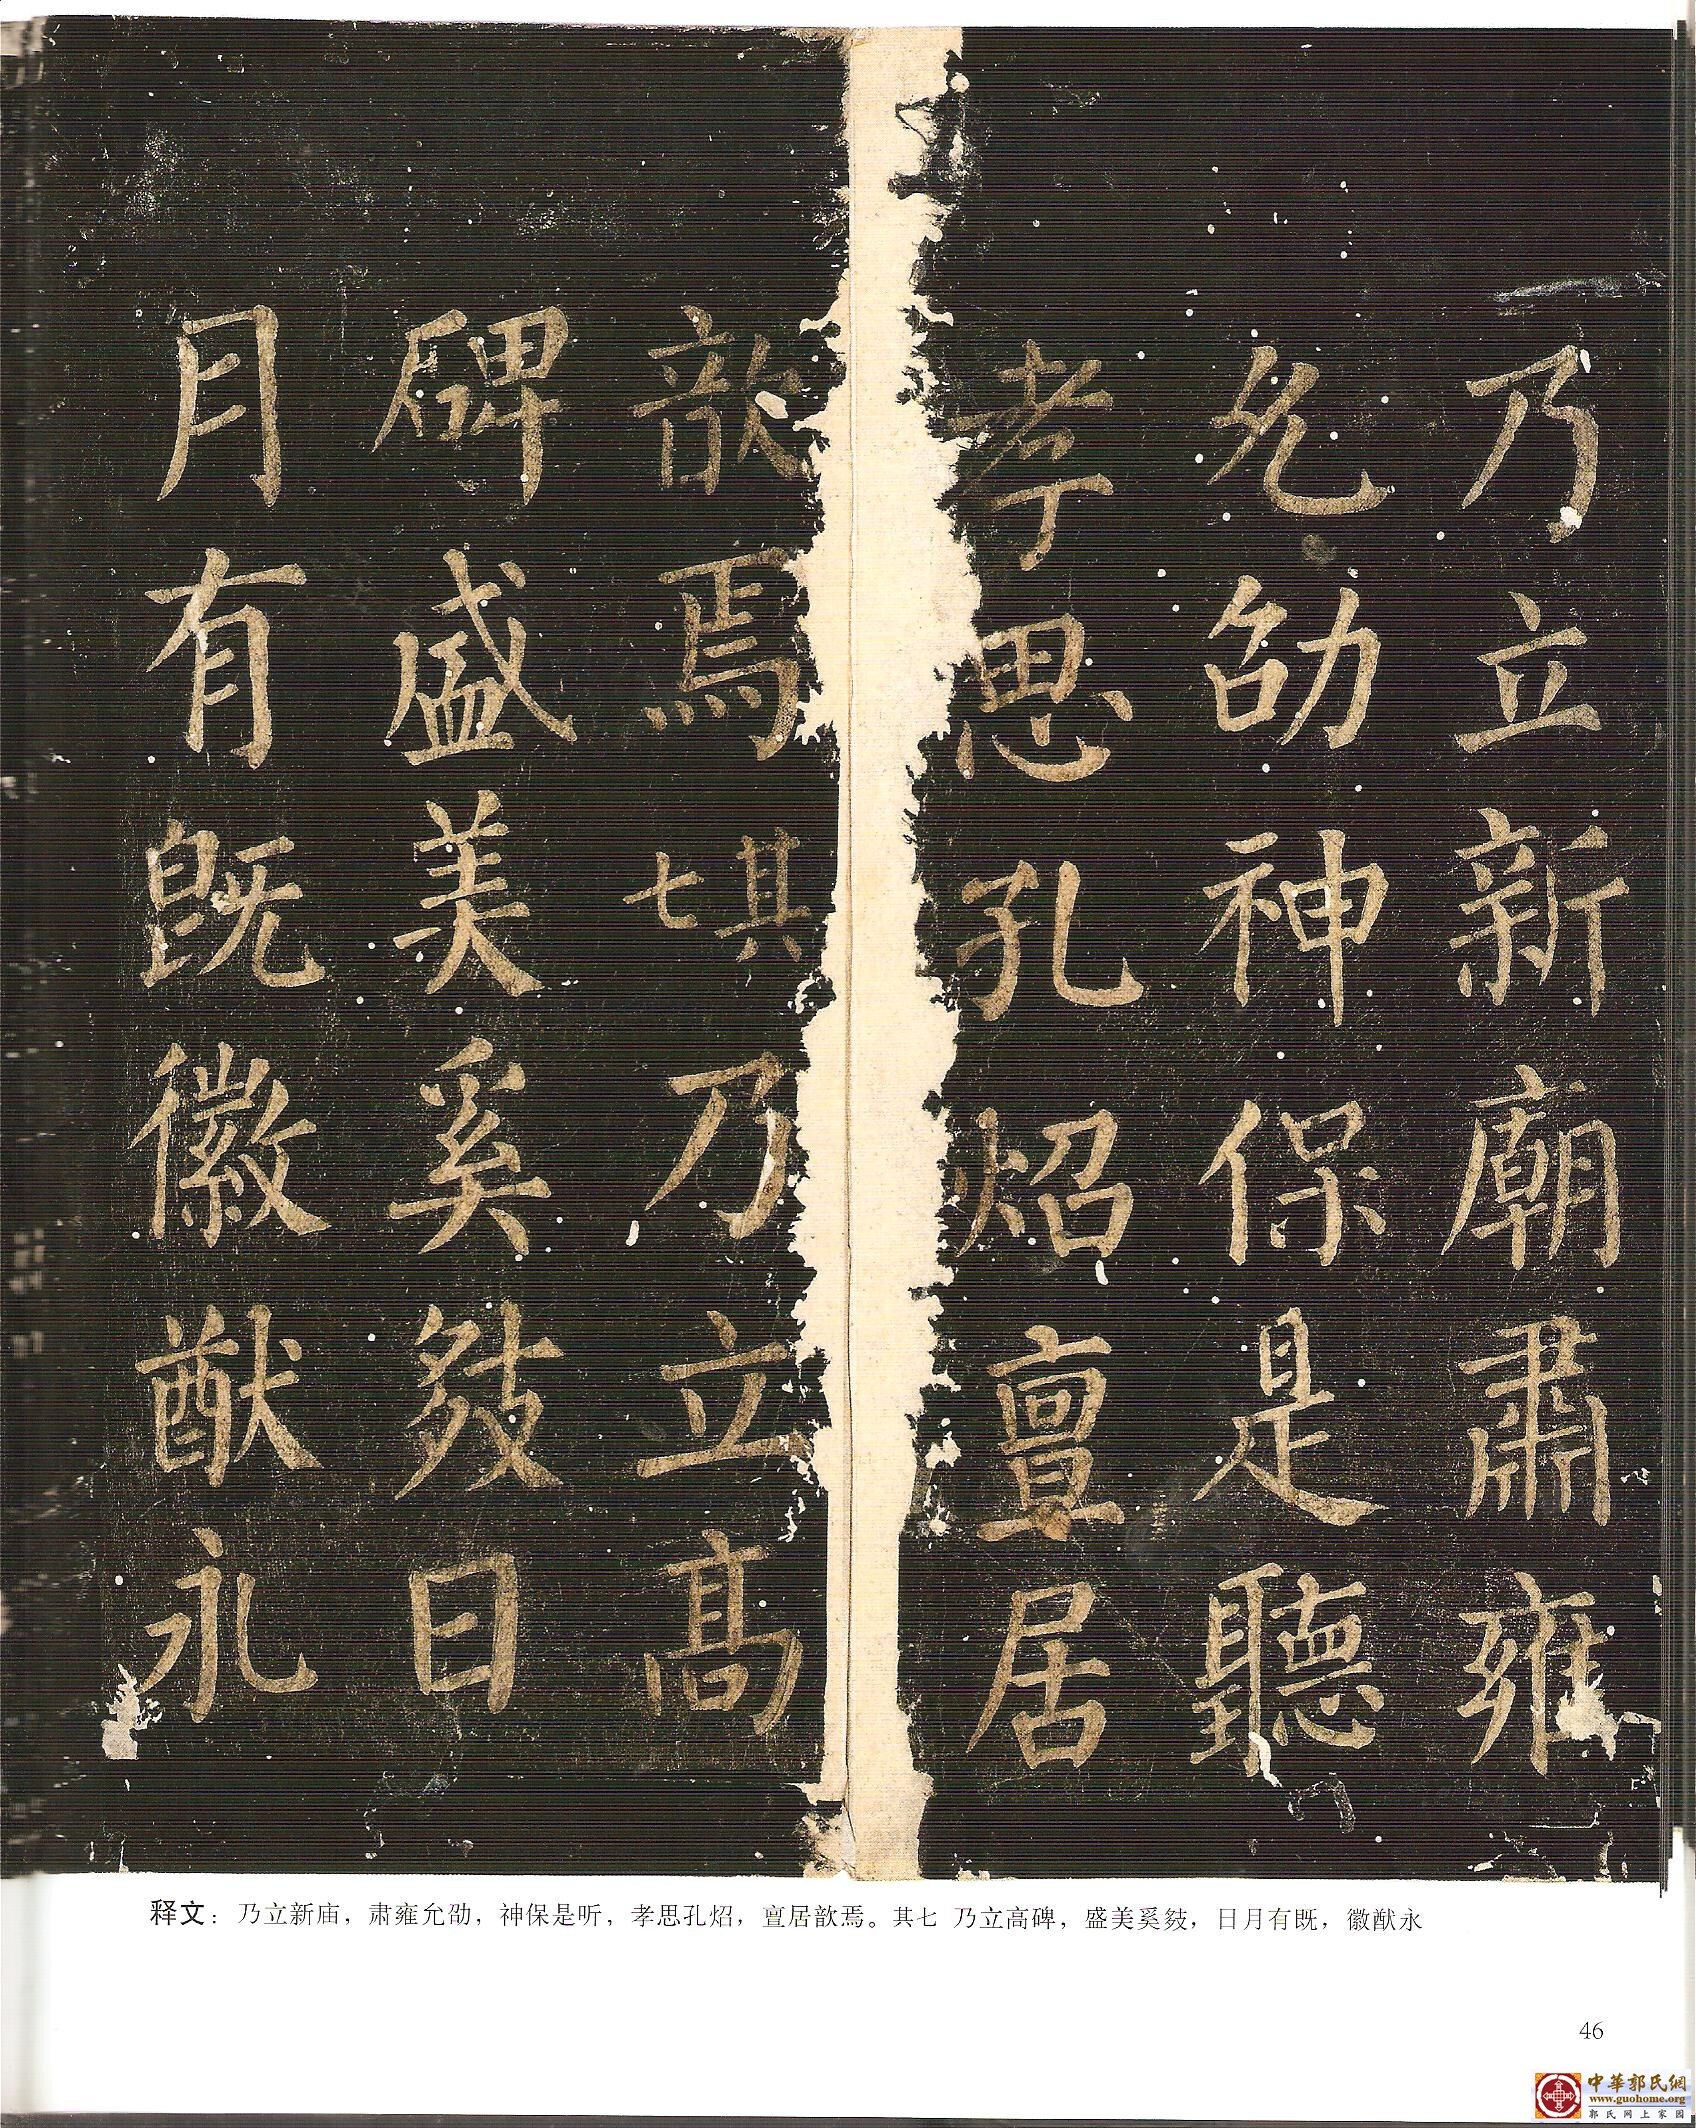 乃立新廟肅雍
允劭神保是聽
孝思孔炤亶居
歆焉其七乃立高
碑盛美奚敠日
月有既徽猷永
释文：乃立新庙，肃雍允劭，神保是听，孝思孔炤，亶居歆焉。其七 乃立高碑，盛美奚敠，日月有既，徽猷永
46
中華郭氏網
www.guohome.org
郭氏网上家园